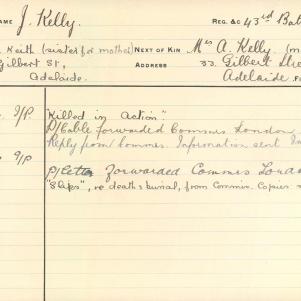 NAME J. Kelly. REG. &C 43rd Bat
Keith (sister for mother) NEXT OF KIN Mrs A. Kelly (m
Gilbert St, ADDRESS 33 Gilbert Stre
Adelaide. Adelaide
9/P. "Killed in Action".
P/Cable forwarded Commis London
Reply from Commis. Information sent
9/P P/Letter forwarded Commis Lond
"Slips", re death & burial, from Commis. Copies